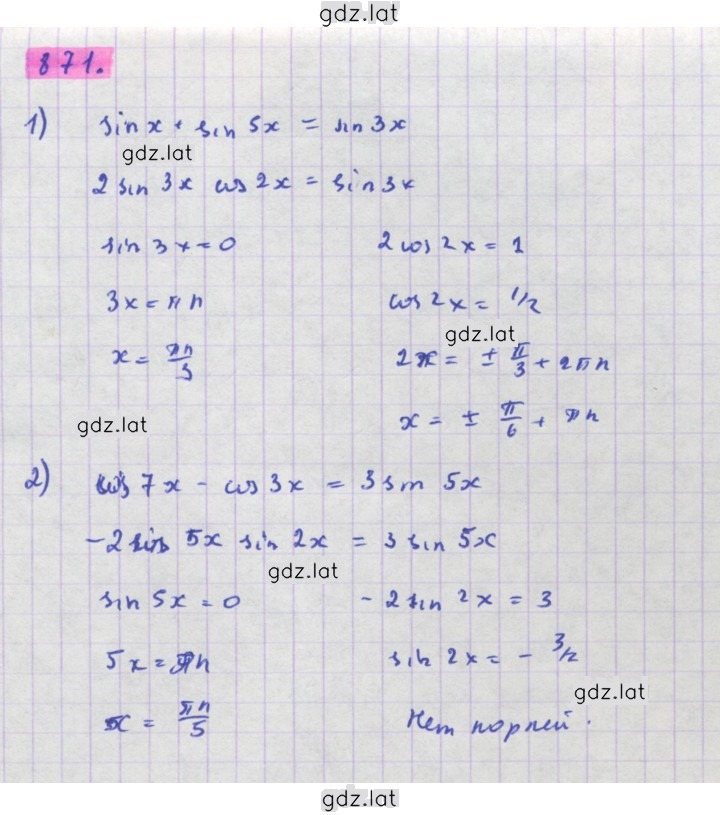 gdz.lat
871.
1) sin x + sin 5x = sin 3x
gdz.lat
2 sin 3x cos 2x = sin 3x
sin 3x = 0
2 cos 2x = 1
3x = πn
cos 2x = 1/2
gdz.lat
x = πn/3
2x = ± π/3 + 2πn
gdz.lat
x = ± π/6 + πn
2) cos 7x - cos 3x = 3 sin 5x
-2 sin 5x sin 2x = 3 sin 5x
gdz.lat
sin 5x = 0
-2 sin 2x = 3
5x = πn
sin 2x = - 3/2
gdz.lat
x = πn/5
Нет корней.
gdz.lat